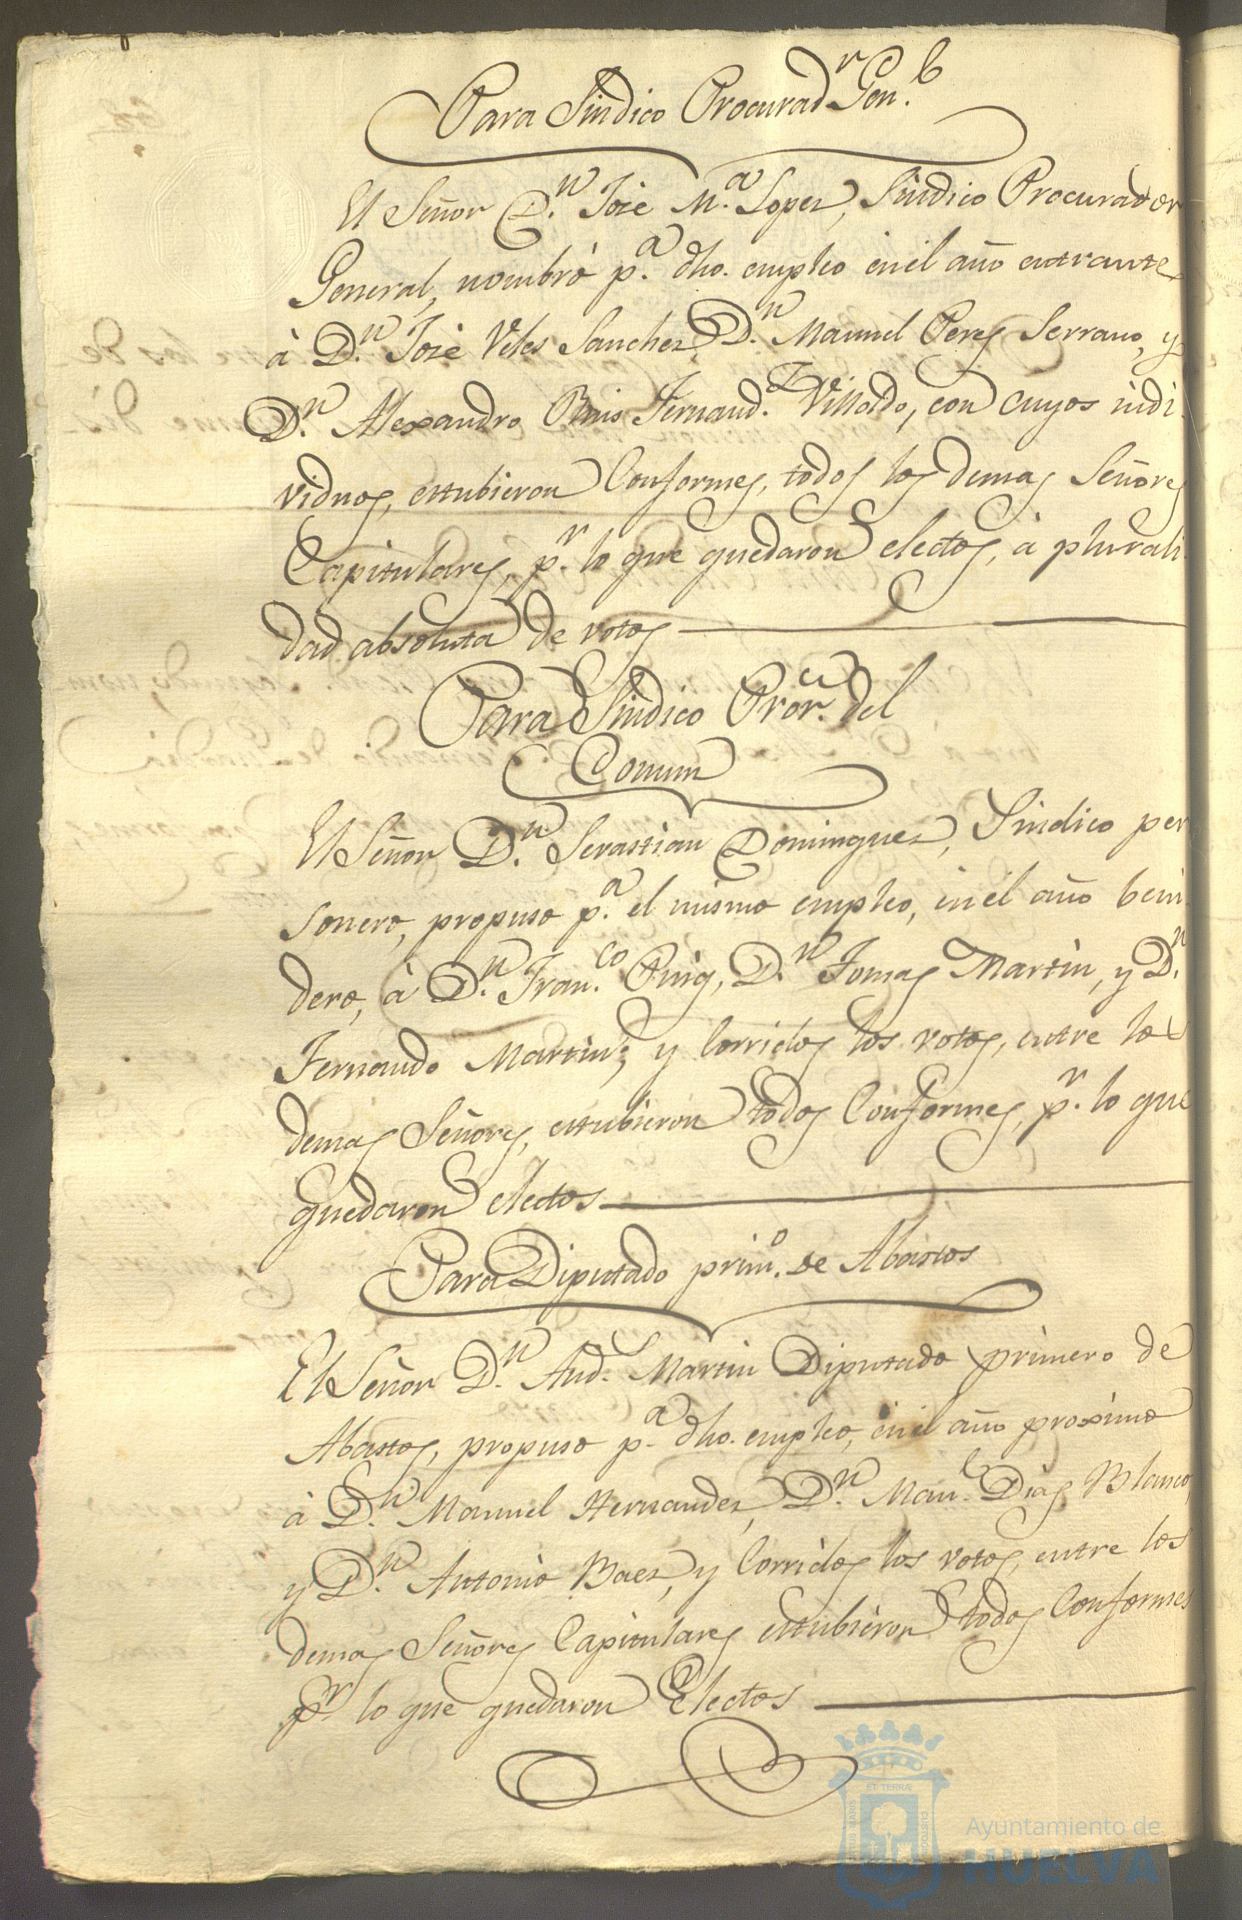 Para Sindico Procurad.r Gen.l
El Señor D.n Jose M.a Lopez, Sindico Procurador
General, nombró p.a dho. empleo en el año entrante
à D.n José Veles Sanchez, D.n Manuel Peres Serrano, y
D.n Alexandro Ruis Fernand.z Villoldo, con cuyos indi-
viduos, estubieron Conformes, todos los demas Señores
Capitulares, p.r lo que quedaron electos, à plurali-
dad absoluta de votos
Para Sindico Pror. del
Comun
El Señor D.n Sevastian Dominguez, Sindico per-
sonero, propuso p.a el mismo empleo, en el año beni-
dero, à D.n Fran.co Puig, D.n Tomas Martin, y D.n
Fernando Martin; y Corridos los votos, entre los
demas Señores, estubieron todos Conformes, p.r lo que
quedaron electos
Para Diputado prim.o de Abastos
El Señor D.n And.s Martin Diputado primero de
Abastos, propuso p.a dho. empleo, en el año proximo
à D.n Manuel Hernandez, D.n Man.l Dias Blanco,
y D.n Antonio Baez, y Corridos los votos, entre los
demas Señores Capitulares estubieron todos Conformes
p.r lo que quedaron Electos
Ayuntamiento de
HUELVA